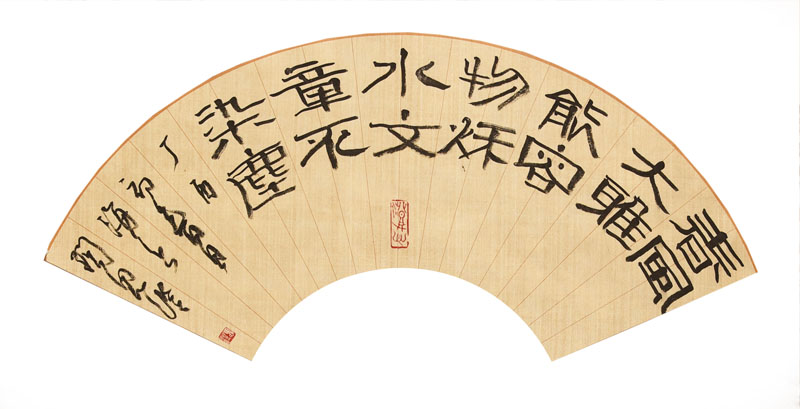 春風
大雅
能容
物秋
水文
章不
染塵
丁酉
海上